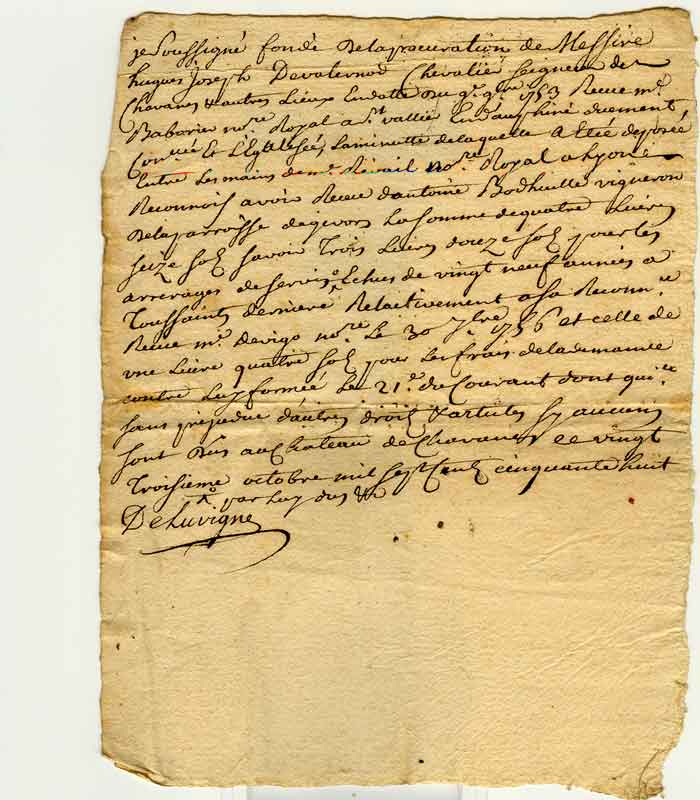 je Soussigné fondé de la procuration de Messire
hugues Joseph Devalernod Chevallier Seigneur de
Chavanes & autres Lieux En datte du 9e 9bre 1753 Reçue me
Babarier nore Royal a St vallier En dauphiné duement
Conllée Et LEgalisée, La minutte de laquelle a Etée deposée
Entre Les mains de me nore Royal a Lyon
Reconnois avoir Reçeu d'antoine Bodhuille vigneron
de la parroisse de givors La Somme de quatre Livres
Seize Sols Savoir Trois Livres douze Sols pour Les
arrerages de Servis Echus de vingt neuf années a
Toussaints derniere Relativement a sa Reconnce
Reçue me Devigo nore Le 30 7bre 1756 et celle de
une Livre quatre Sols pour Les frais de la demande
contre Luy formée Le 21e du Courant dont quitte
Sans prejudice d'autres droits & artictes Sy aucuns
Sont dus au Chateau de Chavanes ce vingt
Troisieme octobre mil Sept Cent cinquante huit
par Luy dus &a
DeLuvigne